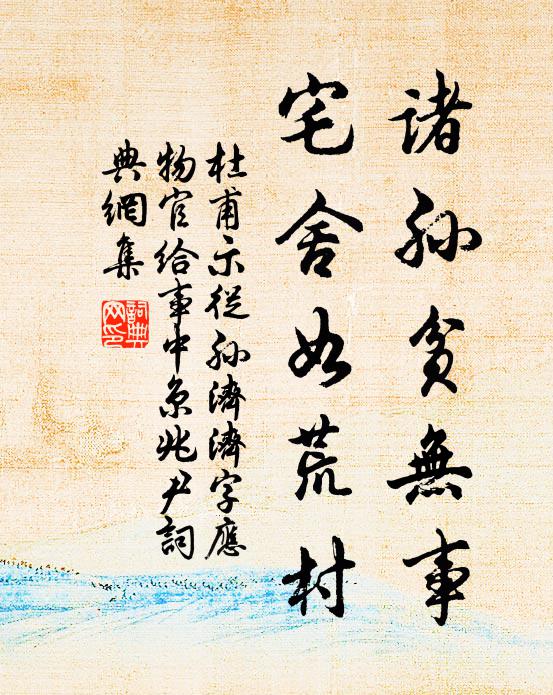 諸孫貧無事
宅舍如荒村
杜甫示從孫濟濟字應
物官給事中京兆尹詞
典網集
詞典网印